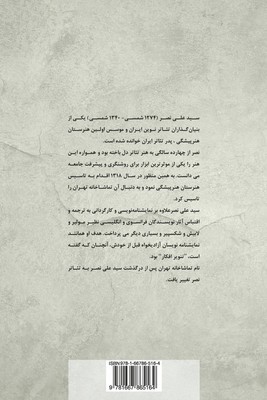 سید علی نصر (۱۲۷۴ شمسی- ۱۳۴۰ شمسی) یکی از
بنیان‌گذاران تئاتر نوین ایران و موسس اولین هنرستان
هنرپیشگی ، پدر تئاتر ایران خوانده شده است.
نصر از چهارده سالگی به هنر تئاتر دل باخته بود و همواره این
هنر را یکی از موثرترین ابزار برای روشنگری و پیشرفت جامعه
می دانست. به همین منظور در سال ۱۳۱۸ اقدام به تاسیس
هنرستان هنرپیشگی نمود و به دنبال آن تماشاخانه تهران را
تاسیس کرد.
سید علی نصرعلاوه بر نمایشنامه‌نویسی و کارگردانی به ترجمه و
اقتباس آثار نویسندگان فرانسوی و انگلیسی نظیر مولیر و
لابیش و شکسپیر و بسیاری دیگر می پرداخت. هدف او همانند
نمایشنامه نویسان آزادیخواه قبل از خودش، آنچنان که گفته
است، "تنویر افکار" بود.
نام تماشاخانه تهران پس از درگذشت سید علی نصر به تئاتر
نصر تغییر یافت.
ISBN 978-1-66786-516-4
9 781667 865164